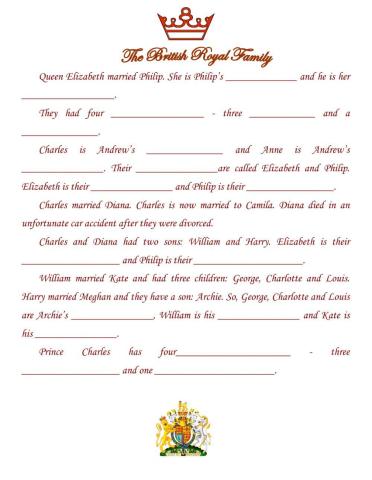 The British Royal Family
Queen Elizabeth married Philip. She is Philip's _______________ and he is her
____________________.
They had four ____________________ - three ______________ and a
________________.
Charles is Andrew's ________________ and Anne is Andrew's
_________________. Their __________________are called Elizabeth and Philip.
Elizabeth is their _________________ and Philip is their ___________________.
Charles married Diana. Charles is now married to Camila. Diana died in an
unfortunate car accident after they were divorced.
Charles and Diana had two sons: William and Harry. Elizabeth is their
____________________ and Philip is their _______________________.
William married Kate and had three children: George, Charlotte and Louis.
Harry married Meghan and they have a son: Archie. So, George, Charlotte and Louis
are Archie's _________________, William is his _________________ and Kate is
his _________________.
Prince Charles has four________________________ - three
_____________________ and one _________________________.